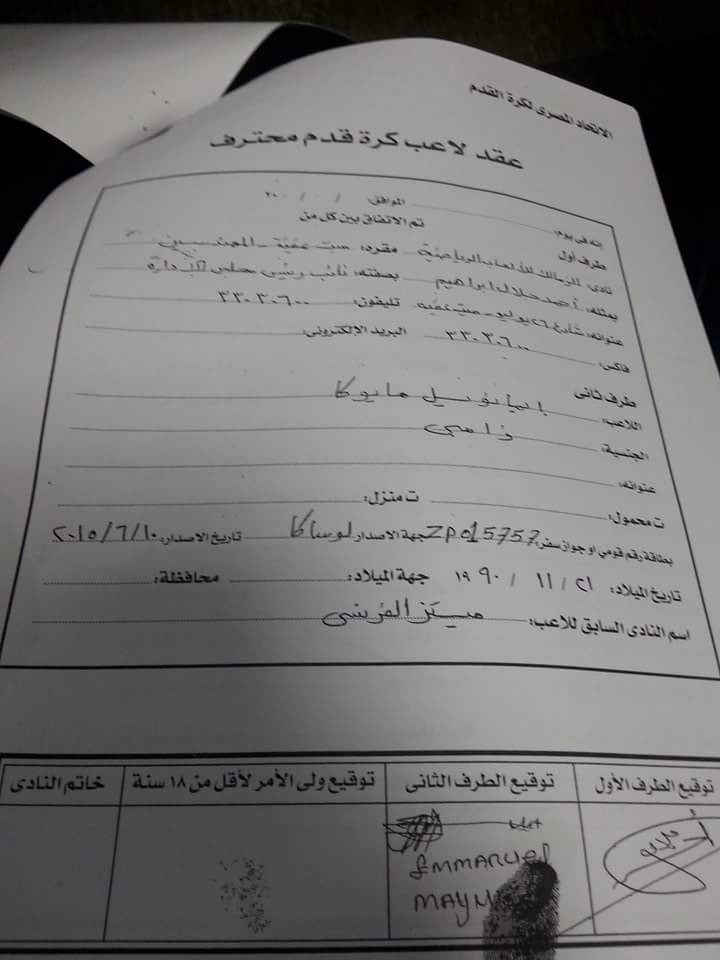 الاتحاد المصرى لكرة القدم
عقد لاعب كرة قدم محترف
إنه فى يوم: الموافق: / / ٢٠٠
تم الاتفاق بين كل من
طرف أول
نادى: الزمالك للألعاب الرياضية مقره: ميت عقبة - المهندسين
يمثله: أحمد جلال ابراهيم بصفته: نائب رئيس مجلس الإدارة
عنوانه: شارع ٢٦ يوليو - ميت عقبه تليفون: ٣٣٠٣٠٦٠٠
فاكس: ٣٣٠٣٠٦٠٠ البريد الإلكترونى:
طرف ثانى
اللاعب: ايمانويل مايوكا
الجنسية: زامبى
عنوانه:
ت محمول: ت منزل:
بطاقة رقم قومي او جواز سفر: ZP015757 جهة الاصدار: لوساكا تاريخ الاصدار: ٢٠١٥/٦/١٠
تاريخ الميلاد: ٢١ / ١١ / ١٩٩٠ جهة الميلاد: محافظة:
اسم النادى السابق للاعب: ميتز الفرنسى
توقيع الطرف الأول توقيع الطرف الثانى توقيع ولى الأمر لأقل من ١٨ سنة خاتم النادى
EMMANUEL